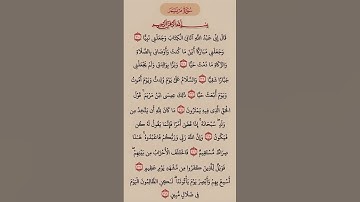 سورة مريم
بسم الله الرحمن الرحيم
قَالَ إِنِّي عَبْدُ اللَّهِ آتَانِيَ الْكِتَابَ وَجَعَلَنِي نَبِيًّا
وَجَعَلَنِي مُبَارَكًا أَيْنَ مَا كُنتُ وَأَوْصَانِي بِالصَّلَاةِ
وَالزَّكَاةِ مَا دُمْتُ حَيًّا وَبَرًّا بِوَالِدَتِي وَلَمْ يَجْعَلْنِي
جَبَّارًا شَقِيًّا وَالسَّلَامُ عَلَيَّ يَوْمَ وُلِدتُّ وَيَوْمَ أَمُوتُ
وَيَوْمَ أُبْعَثُ حَيًّا ذَٰلِكَ عِيسَى ابْنُ مَرْيَمَ قَوْلَ
الْحَقِّ الَّذِي فِيهِ يَمْتَرُونَ مَا كَانَ لِلَّهِ أَن يَتَّخِذَ مِن
وَلَدٍ سُبْحَانَهُ إِذَا قَضَىٰ أَمْرًا فَإِنَّمَا يَقُولُ لَهُ كُن
فَيَكُونُ وَإِنَّ اللَّهَ رَبِّي وَرَبُّكُمْ فَاعْبُدُوهُ هَٰذَا
صِرَاطٌ مُّسْتَقِيمٌ فَاخْتَلَفَ الْأَحْزَابُ مِن بَيْنِهِمْ
فَوَيْلٌ لِّلَّذِينَ كَفَرُوا مِن مَّشْهَدِ يَوْمٍ عَظِيمٍ
أَسْمِعْ بِهِمْ وَأَبْصِرْ يَوْمَ يَأْتُونَنَا لَٰكِنِ الظَّالِمُونَ الْيَوْمَ
فِي ضَلَالٍ مُّبِينٍ